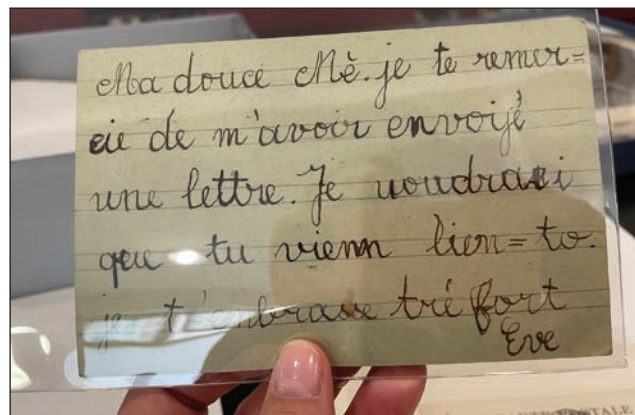 Ma douce Mè. je te remer=
cie de m'avoir envoijé
une lettre. Je voudrai
que tu vienn bien=to.
je t'enbrasse tré fort
Eve